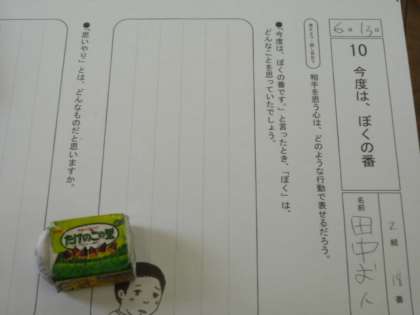 6月13日
10 今度は、ぼくの番
2組 18番
名前
相手を思う心は、どのような行動で表せるだろう。
●「今度は、ぼくの番です。」と言ったとき、「ぼく」は、
どんなことを思っていたでしょう。
●「思いやり」とは、どんなものだと思いますか。
たけのこの里